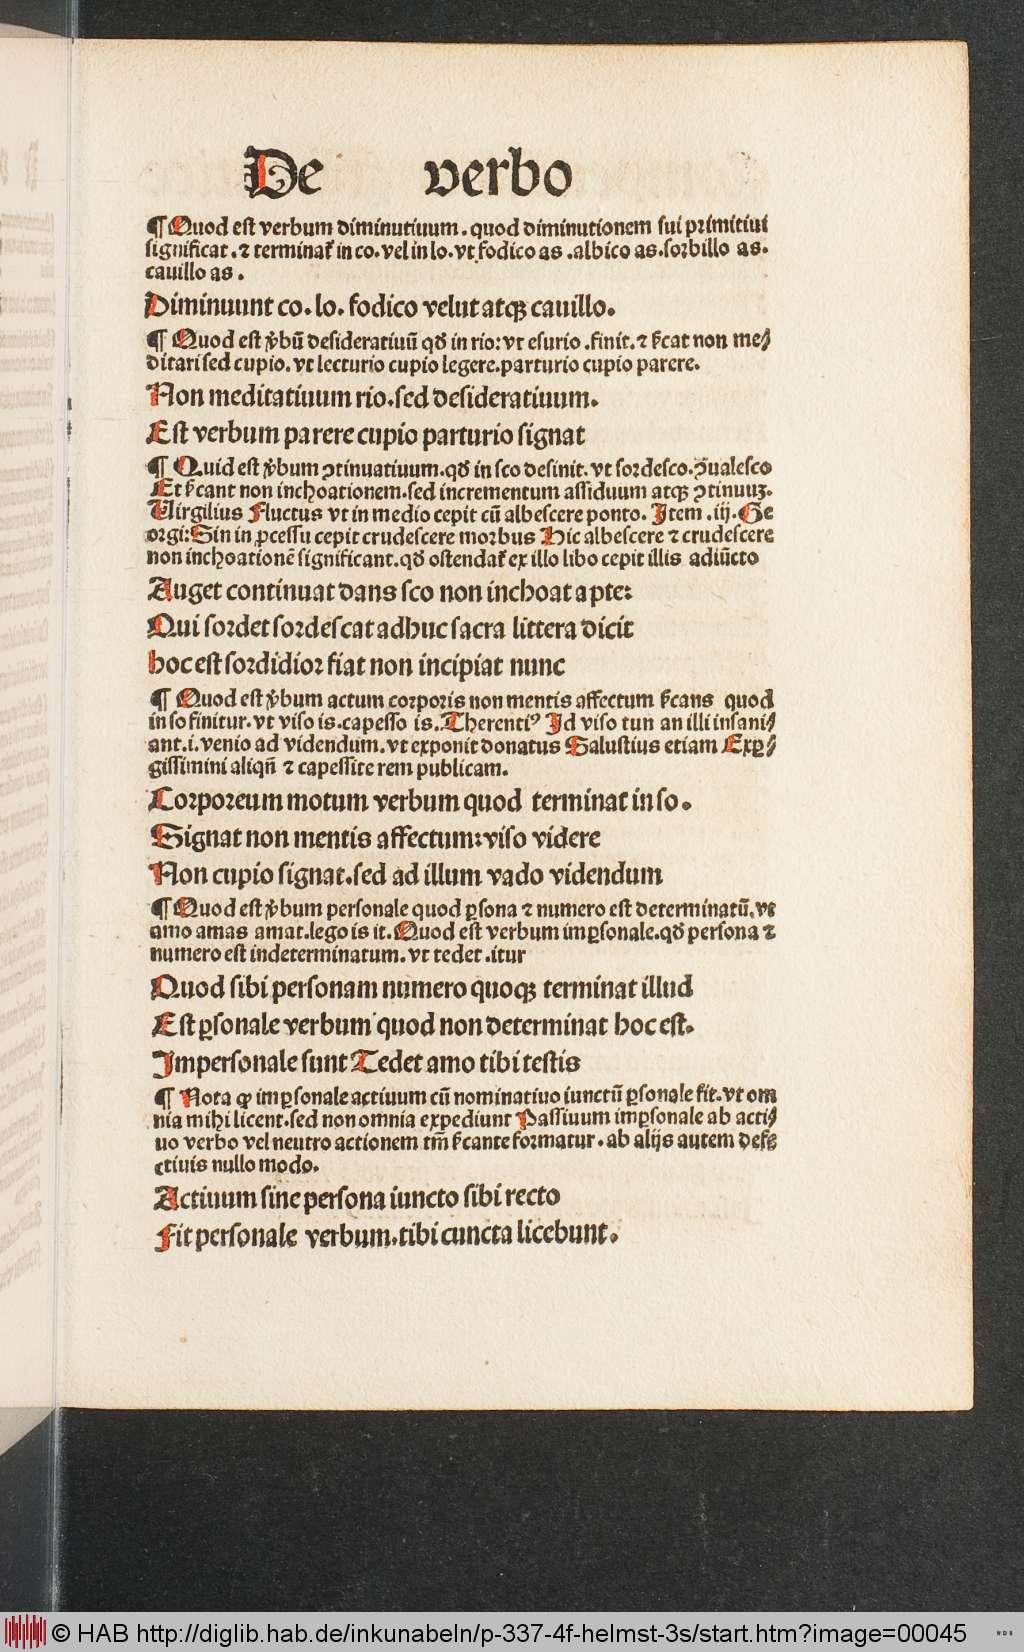 De verbo
¶ Quod est verbum diminutiuum . quod diminutionem sui primitiui
significat . ⁊ terminat᷑ in co . vel in lo . vt fodico as . albico as . sorbillo as .
cauillo as .
Diminuunt co . lo . fodico velut atqꝫ cauillo .
¶ Quod est v̓bũ desideratiuũ qđ in rio: vt esurio . finit . ⁊ s̓icat non me⸗
ditari sed cupio . vt lecturio cupio legere . parturio cupio parere .
Non meditatiuum rio . sed desideratiuum .
Est verbum parere cupio parturio signat
¶ Quid est v̓bum ꝯtinuatiuum . qđ in sco desinit . vt sordesco . ꝯualesco
Et s̓icant non inchoationem . sed incrementum assiduum atqꝫ ꝯtinuuꝫ .
Uirgilius Fluctus vt in medio cepit cũ albescere ponto . Item . iij . Ge
orgi: Sin in ꝓcessu cepit crudescere morbus Hic albescere ⁊ crudescere
non inchoationẽ significant . qđ ostendat᷑ ex illo libo cepit illis adiũcto
Auget continuat dans sco non inchoat apte:
Qui sordet sordescat adhuc sacra littera dicit
hoc est sordidior fiat non incipiat nunc
¶ Quod est v̓bum actum corporis non mentis affectum s̓icans quod
in so finitur . vt viso is . capesso is . . Therentiꝰ Id viso tun an illi insani⸗
ant . i . venio ad videndum . vt exponit donatus Salustius etiam Exꝑ⸗
gissimini aliqñ ⁊ capessite rem publicam .
Corporeum motum verbum quod terminat in so .
Signat non mentis affectum: viso videre
Non cupio signat . sed ad illum vado videndum
¶ Quod est v̓bum personale quod ꝑsona ⁊ numero est determinatũ . vt
amo amas amat . lego is it . Quod est verbum imꝑsonale . qđ persona ⁊
numero est indeterminatum . vt tedet . itur
Quod sibi personam numero quoqꝫ terminat illud
Est ꝑsonale verbum quod non determinat hoc est .
Impersonale sunt Tedet amo tibi testis
¶ Nota ꝙ imꝑsonale actiuum cũ nominatiuo iunctũ ꝑsonale fit . vt om
nia mihi licent . sed non omnia expediunt Passiuum imꝑsonale ab acti⸗
uo verbo vel neutro actionem tm̃ s̓icante formatur . ab alijs autem defe
ctiuis nullo modo .
Actiuum sine persona iuncto sibi recto
Fit personale verbum . tibi cuncta licebunt .
© HAB http://diglib.hab.de/inkunabeln/p-337-4f-helmst-3s/start.htm?image=00045